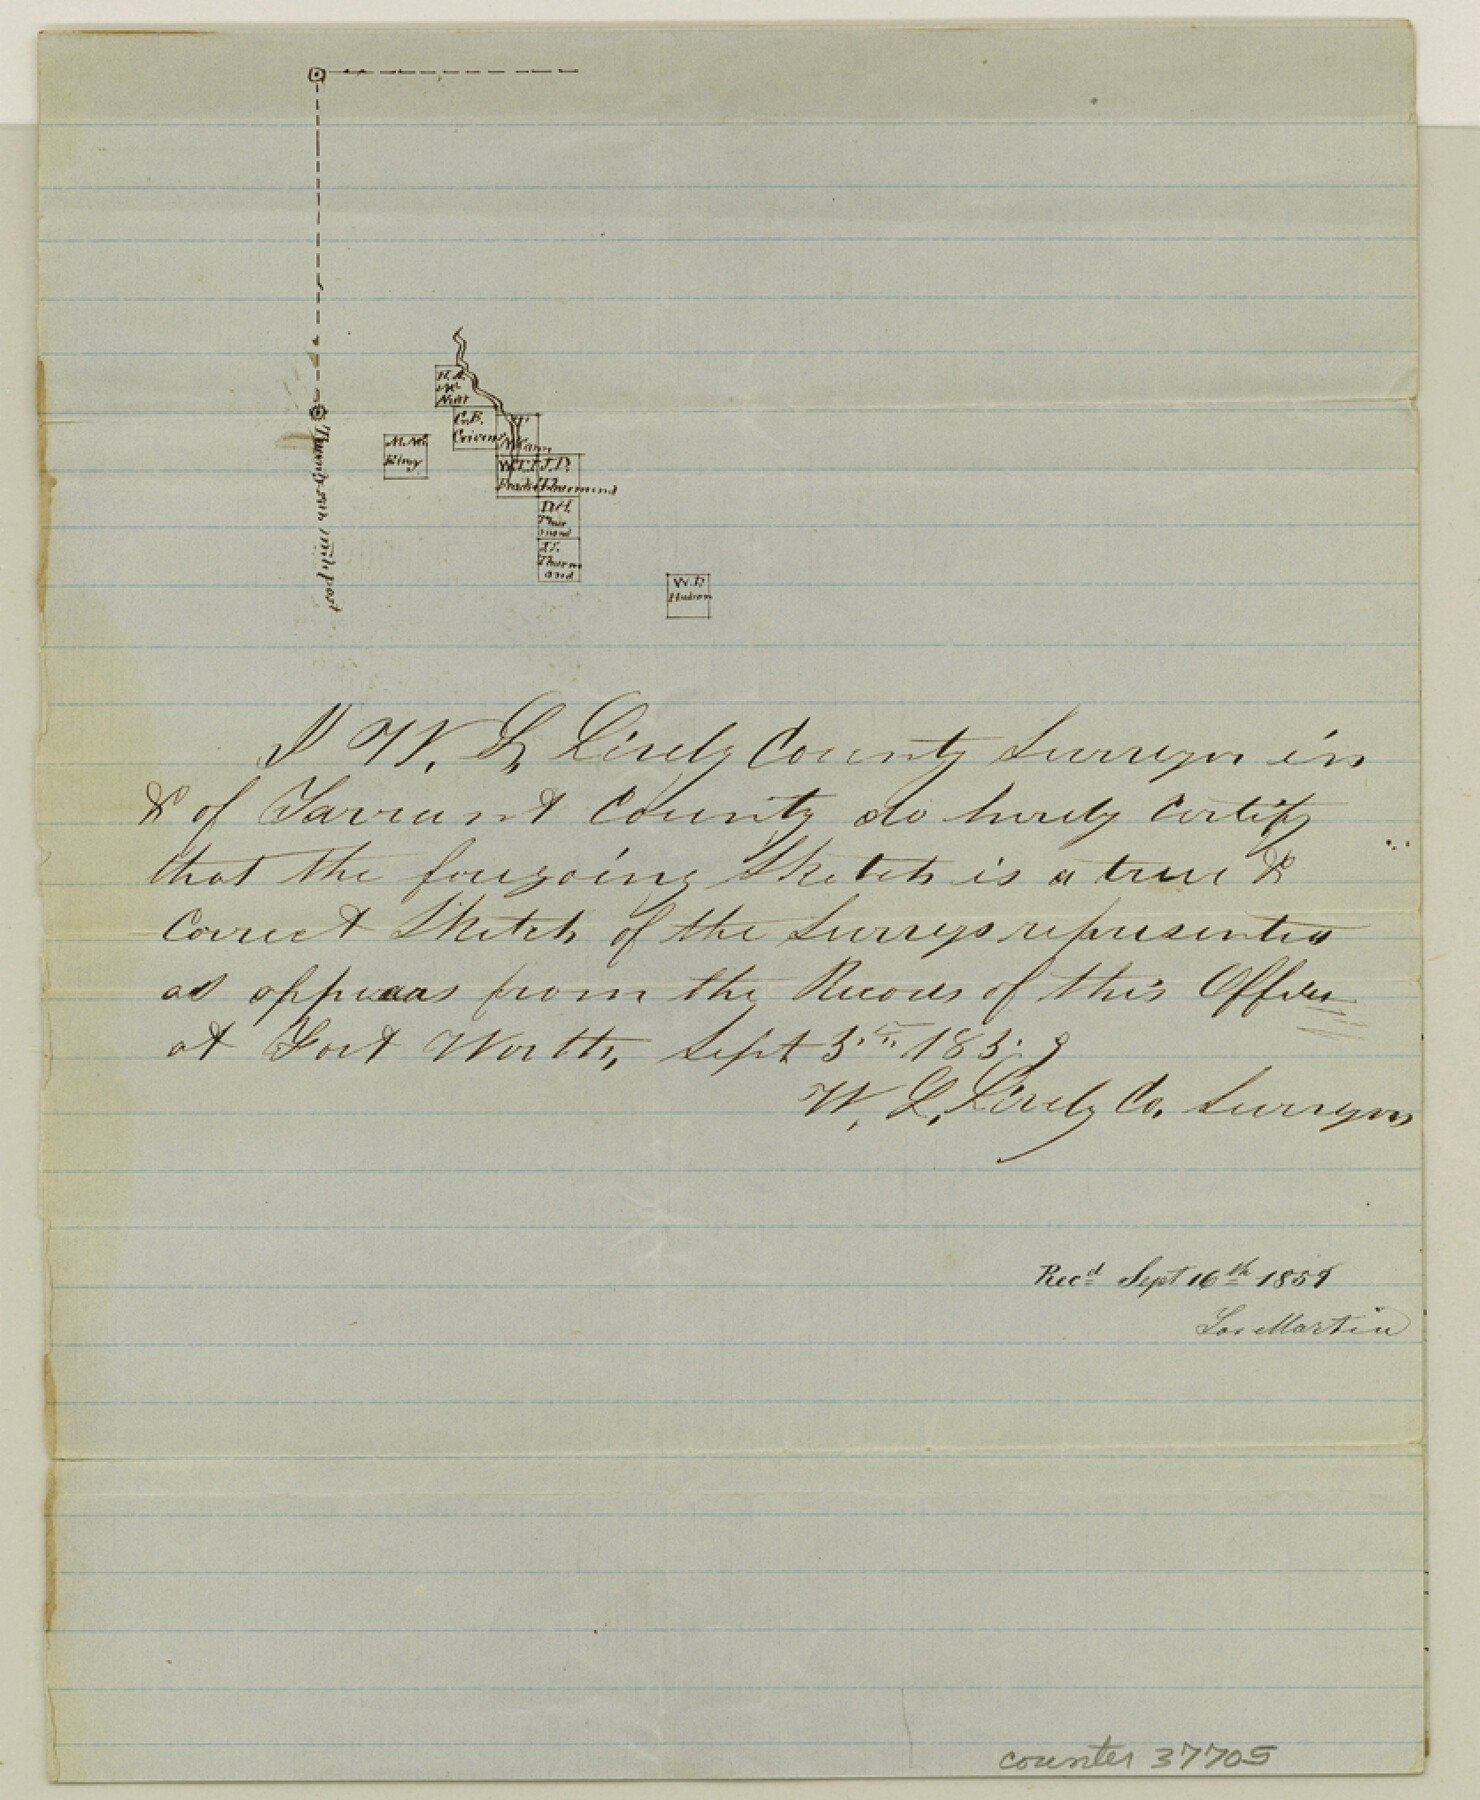 H. A.
Mc
Nutt
C. B.
Crivens
M. Mc
King
W. L.
J. D.
Thurmond
D. H.
Thur
mond
Thurm
ond
W. D
Hudson
mile post
I W. L. Lively County Surveyor in
& of Tarrant County do herely certify
that the foregoing Sketch is a true &
Correct Sketch of the Surveys represented
as appears from the Records of this Office
at Fort Worth, Sept 3. 1859
W. L. Lively Co. Surveyor
Recd Sept 16th 1859
Martin
counter 37705